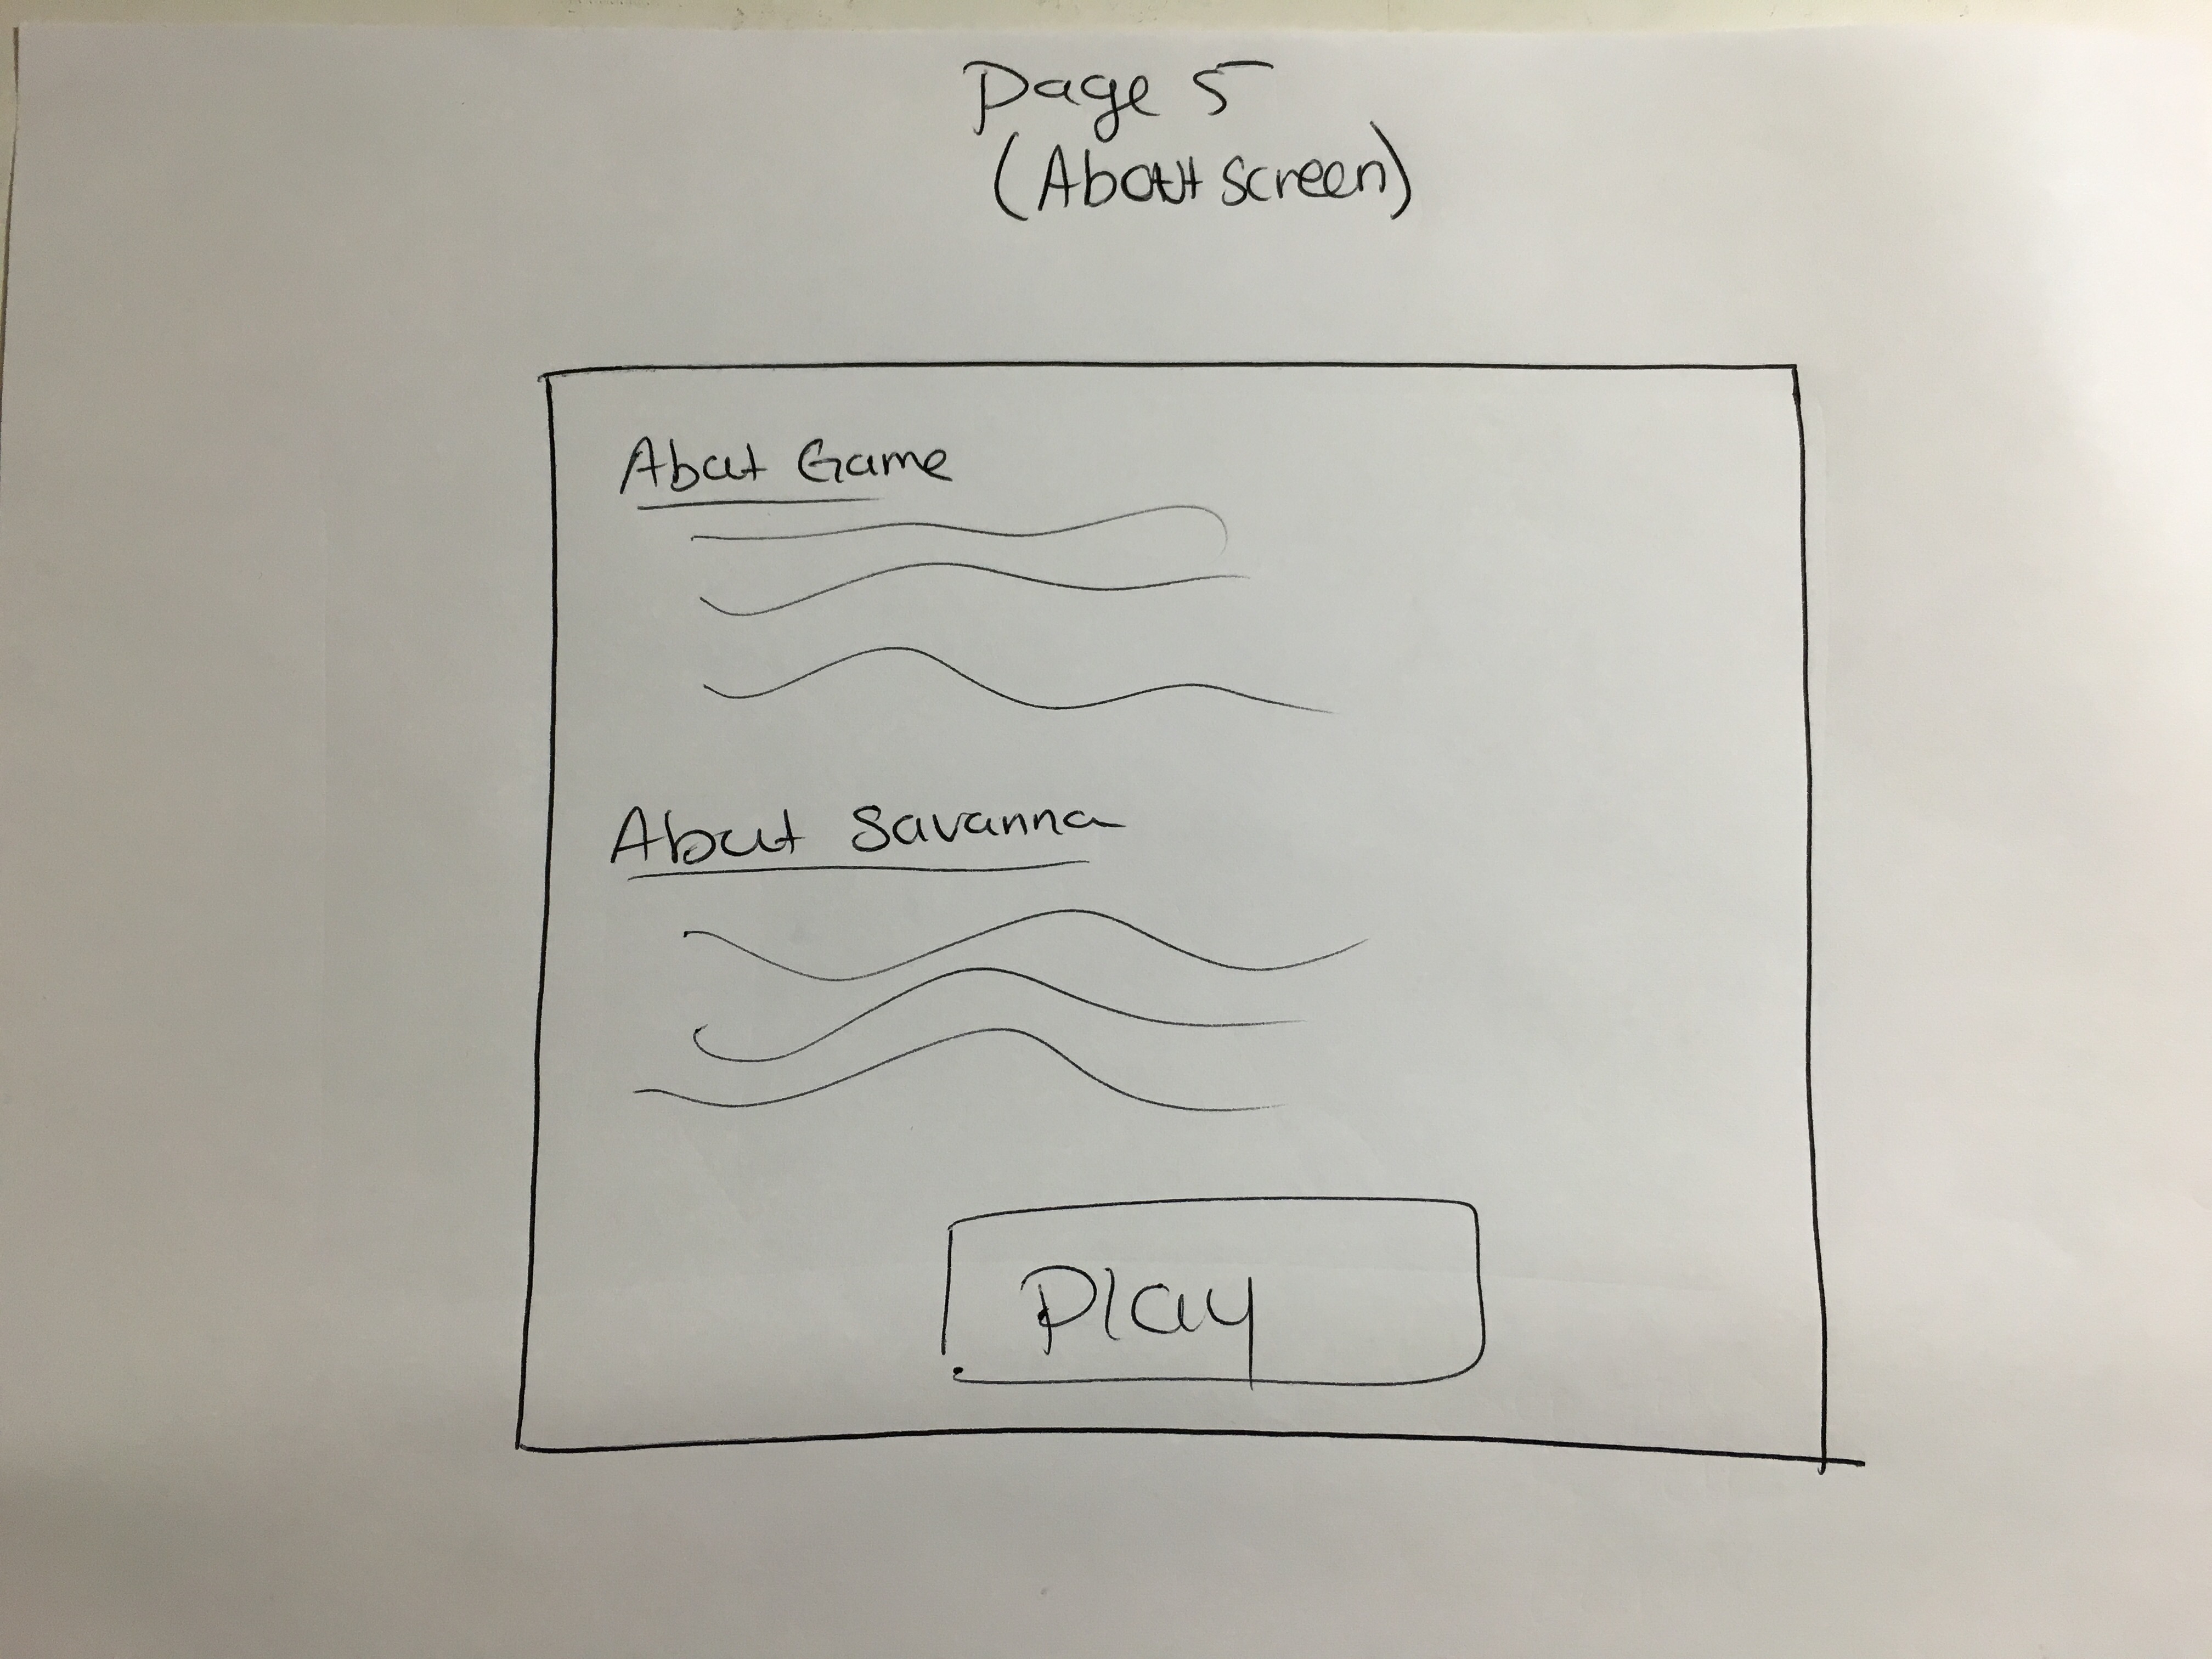 Page 5
(About screen)
About Game
About Savanna
Play